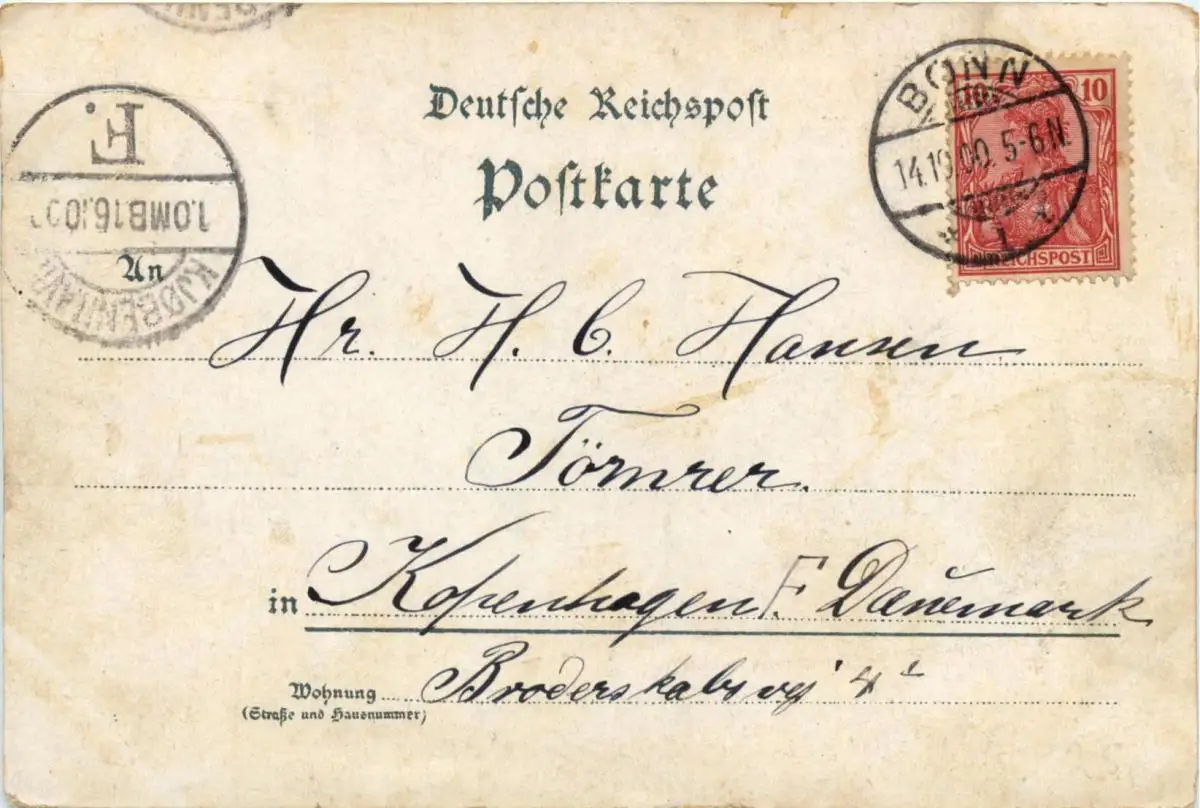 Deutsche Reichspost
Postkarte
BONN
14.10.00. 5-6 N.
* 1 *
10
REICHSPOST
F.
1.OMB 16.10.00
KJØBENHAVN
An
Hr. H. C. Hansen
Tömrer.
in Kopenhagen F. Dänemark
Wohnung Broderskabsvej 4
(Straße und Hausnummer)